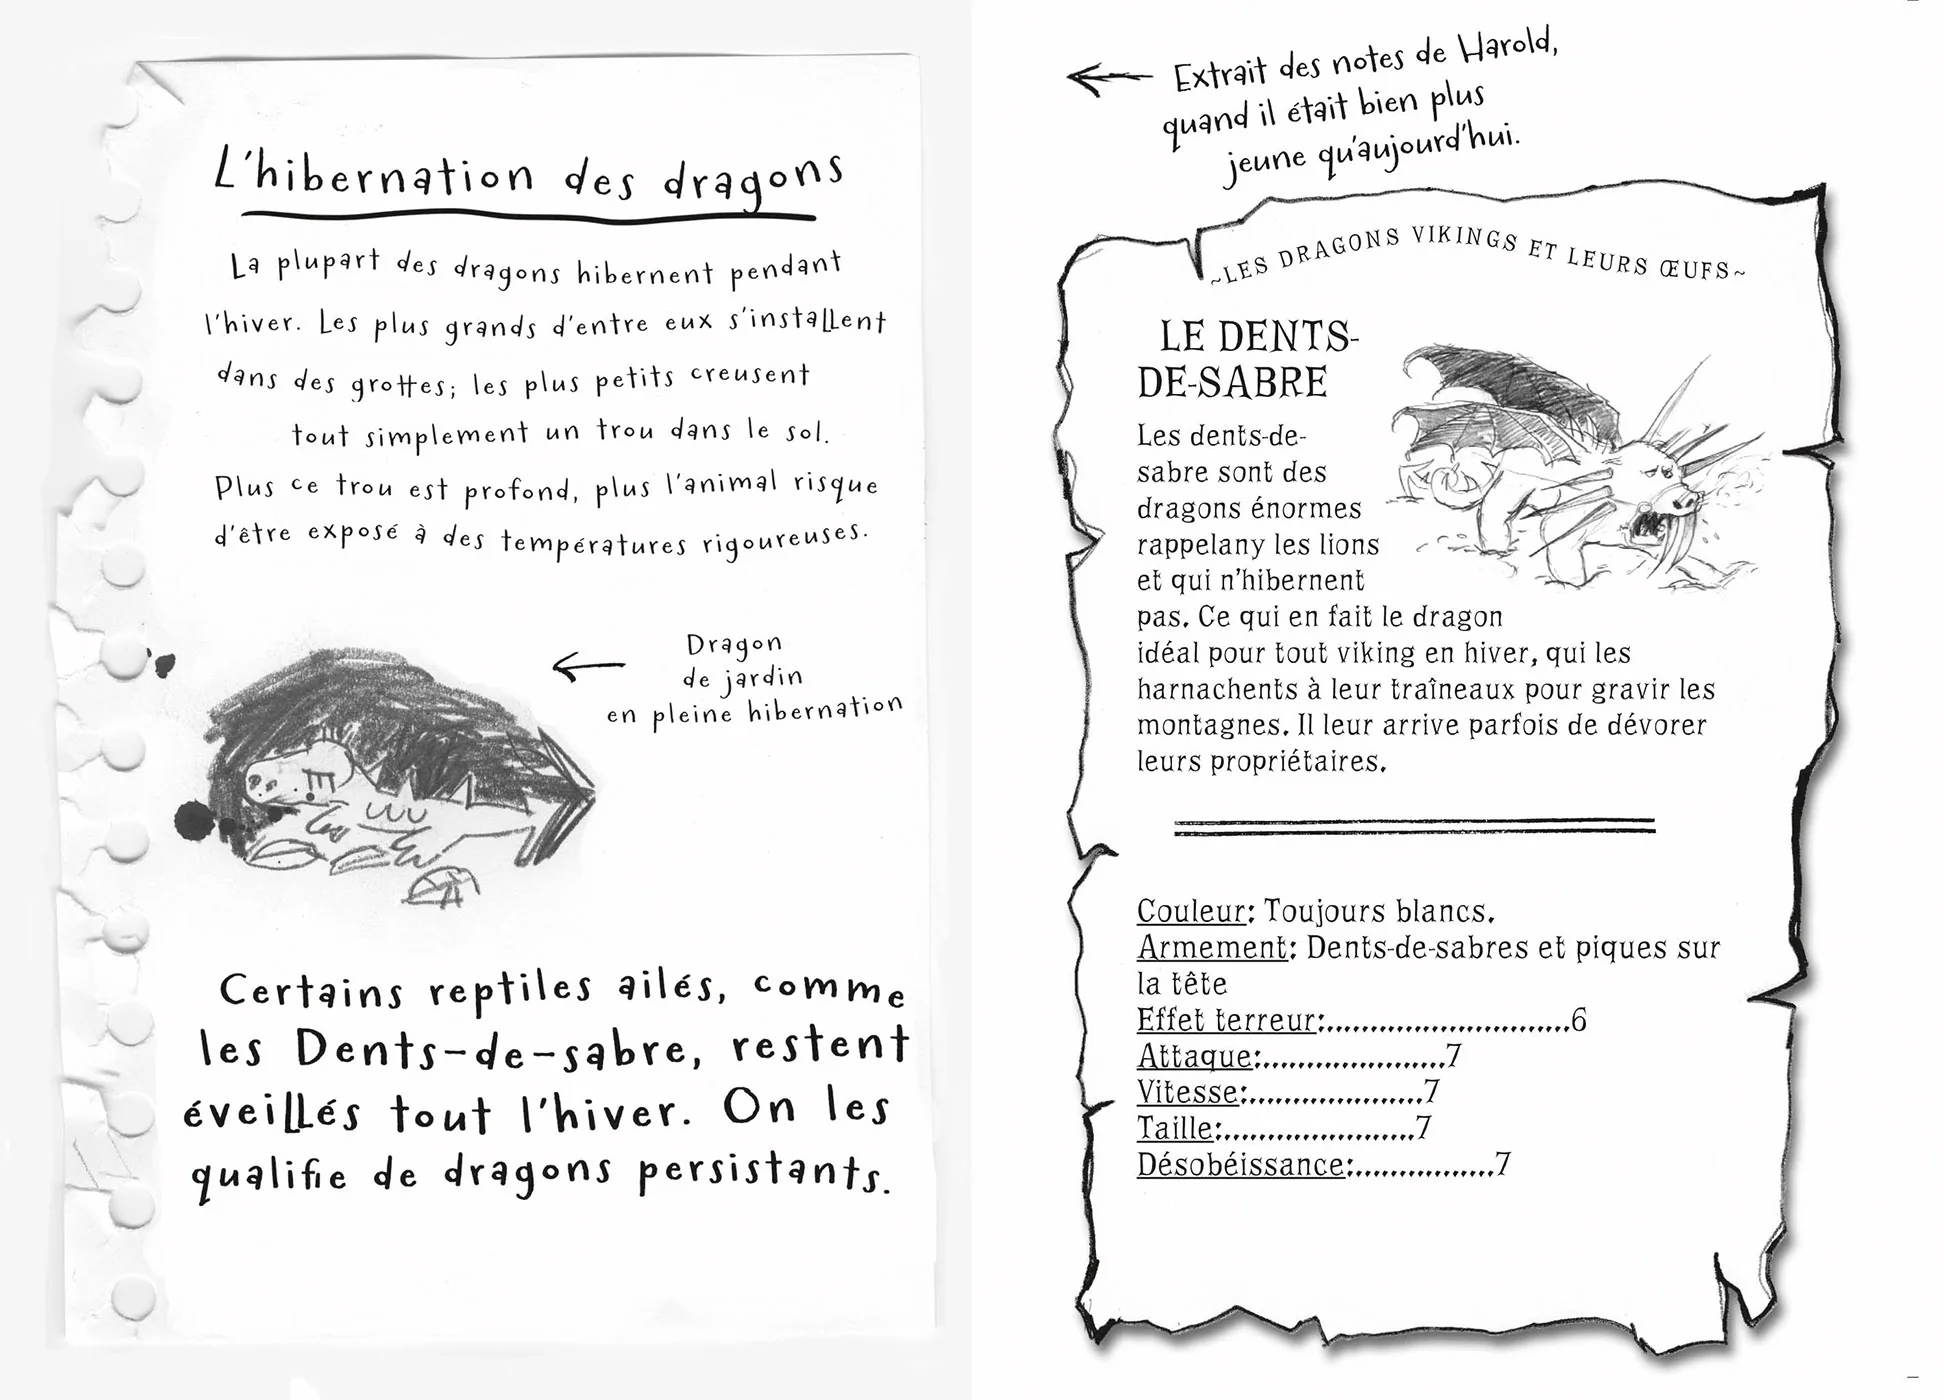 L'hibernation des dragons
La plupart des dragons hibernent pendant
l'hiver. Les plus grands d'entre eux s'installent
dans des grottes; les plus petits creusent
tout simplement un trou dans le sol.
Plus ce trou est profond, plus l'animal risque
d'être exposé à des températures rigoureuses.
Dragon
de jardin
en pleine hibernation
Certains reptiles ailés, comme
les Dents-de-sabre, restent
éveillés tout l'hiver. On les
qualifie de dragons persistants.
Extrait des notes de Harold,
quand il était bien plus
jeune qu'aujourd'hui.
~LES DRAGONS VIKINGS ET LEURS ŒUFS~
LE DENTS-
DE-SABRE
Les dents-de-
sabre sont des
dragons énormes
rappelany les lions
et qui n'hibernent
pas. Ce qui en fait le dragon
idéal pour tout viking en hiver, qui les
harnachents à leur traîneaux pour gravir les
montagnes. Il leur arrive parfois de dévorer
leurs propriétaires.
Couleur: Toujours blancs.
Armement: Dents-de-sabres et piques sur
la tête
Effet terreur:............................6
Attaque:......................7
Vitesse:....................7
Taille:......................7
Désobéissance:................7